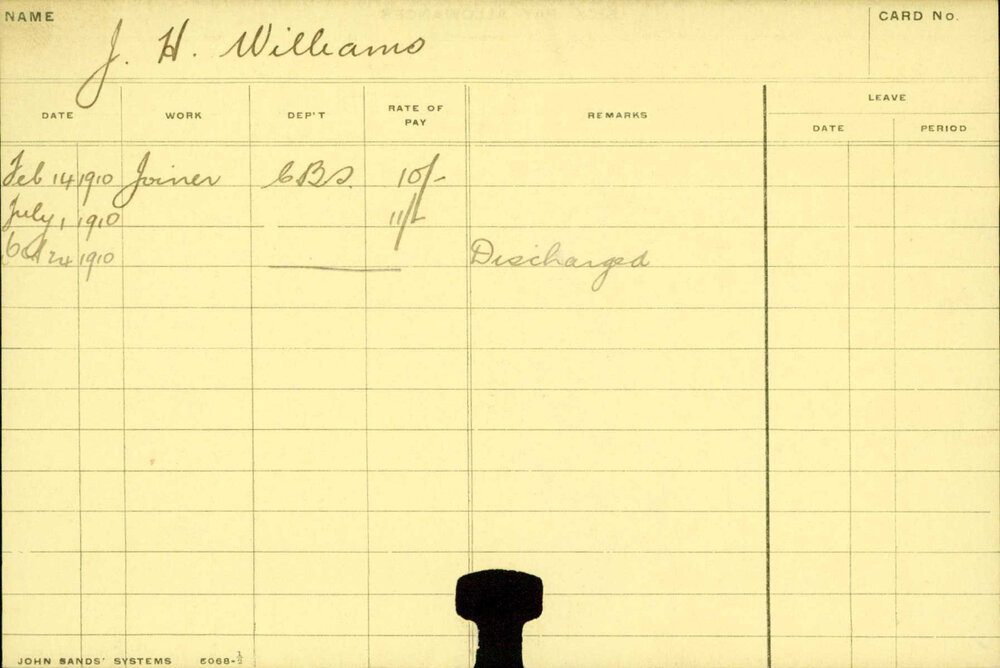 NAME J. H. Williams CARD No.
DATE WORK DEP'T RATE OF PAY REMARKS LEAVE
DATE PERIOD
Feb 14 1910 Joiner C.B.S. 10/-
July 1 1910 11/-
Oct 24 1910 Discharged
JOHN SANDS' SYSTEMS 6068-½